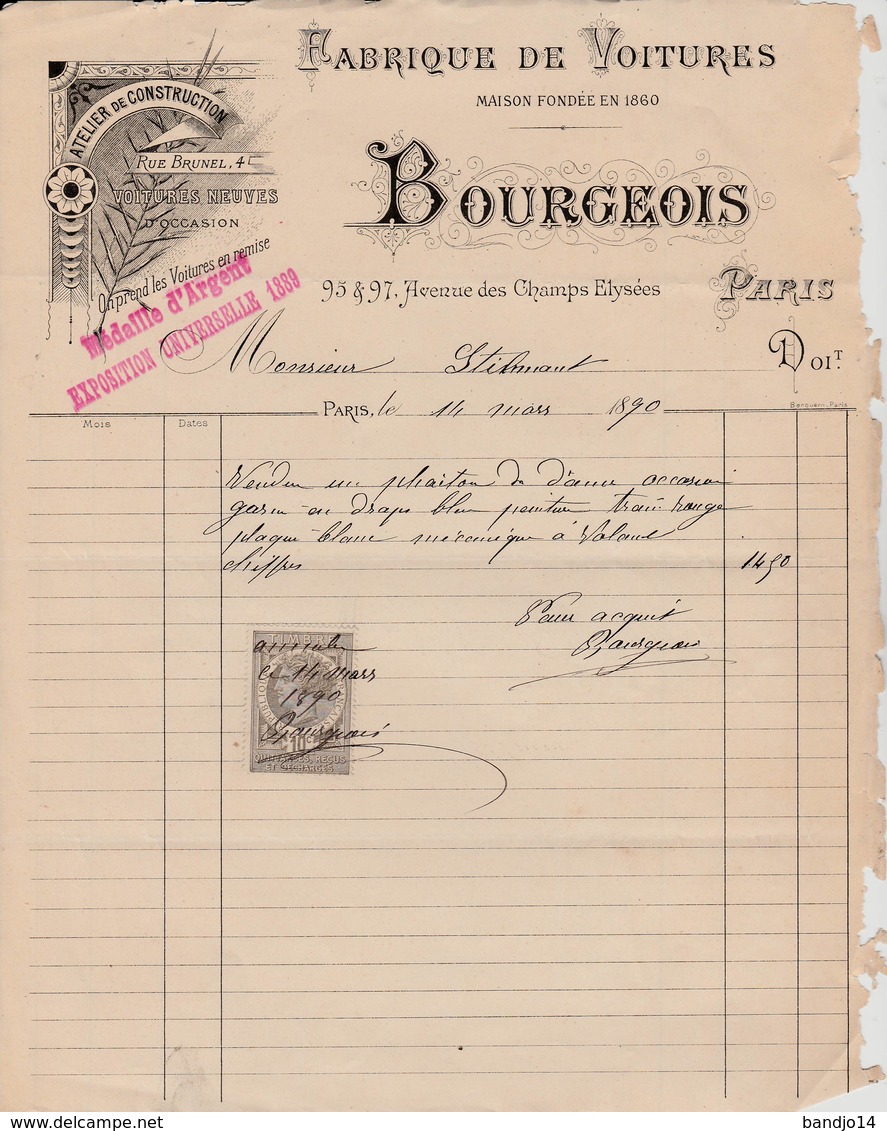 FABRIQUE DE VOITURES
MAISON FONDÉE EN 1860
BOURGEOIS
95 & 97, Avenue des Champs Elysées PARIS
ATELIER DE CONSTRUCTION
RUE BRUNEL, 4
VOITURES NEUVES
D'OCCASION
On prend les Voitures en remise
Médaille d'Argent
EXPOSITION UNIVERSELLE 1889
Monsieur DOIT.
PARIS, le 14 mars 1890
Benquem, Paris
Mois Dates
Vendu un phaiton de dâme occasion
garni en draps bleu peinture train rouge
plaqué blanc mécanique à Volant
chiffres 1450
Pour acquit
Bourgeois
TIMBRE
ce 14 mars
1890
Bourgeois
RÉPUBLIQUE FRANÇAISE
10 c
QUITTANCES, REÇUS
ET DÉCHARGES
Visit www.delcampe.net
bandjo14